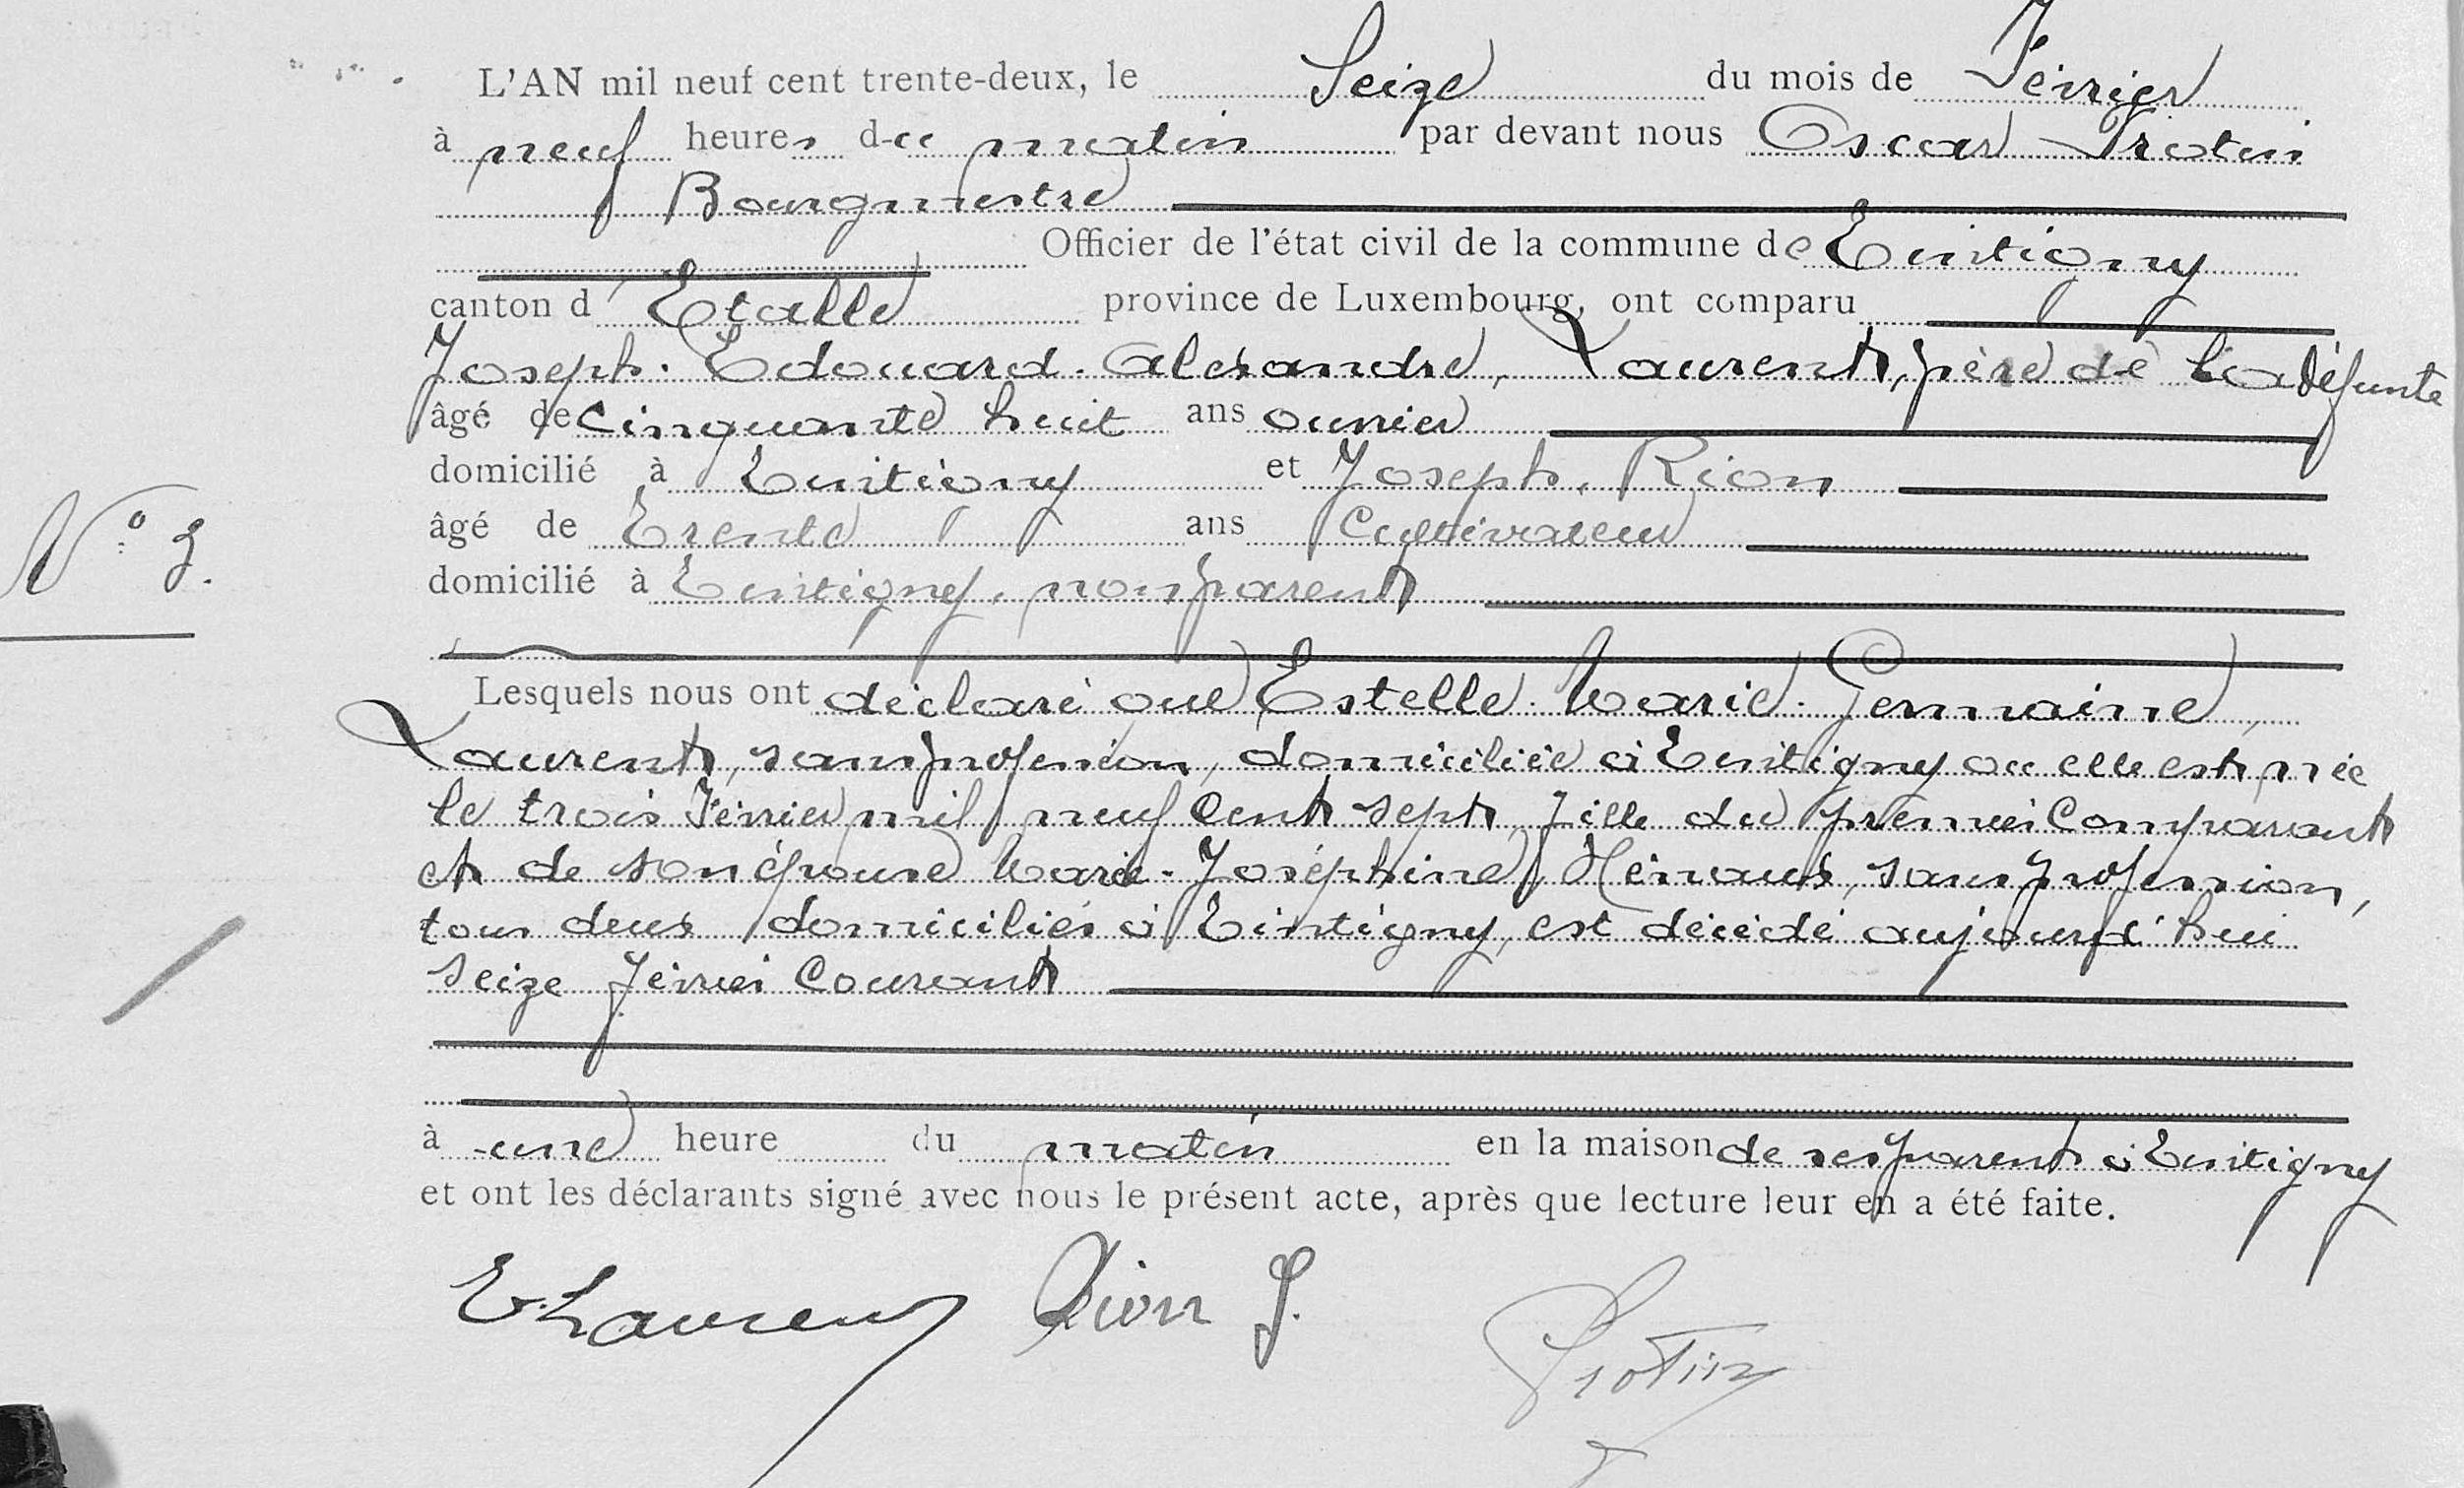 L'AN mil neuf cent trente-deux, le Seize du mois de Février
à neuf heures du matin par devant nous Oscar Frotin
Bourgmestre
Officier de l'état civil de la commune de Tintigny
canton d'Etalle province de Luxembourg, ont comparu
Joseph. Edouard. Alexandre, Laurent, père de la défunte
âgé de cinquante huit ans ouvrier
domicilié à Tintigny et Joseph. Rion
N° 3.
âgé de Trente ans Cultivateur
domicilié à Tintigny, non parent
Lesquels nous ont déclaré que Estelle. Marie. Germaine,
Laurent, sans profession, domiciliée à Tintigny ou elle est née
le trois Février mil neuf Cent sept, fille du premier Comparant
et de son épouse Marie-Joséphine, Hénaux, sans profession,
tous deux domiciliés à Tintigny, est décédé aujourd'hui
seize février Courant
à une heure du matin en la maison de ses parents à Tintigny
et ont les déclarants signé avec nous le présent acte, après que lecture leur en a été faite.
E. Laurent Rion J. Frotin